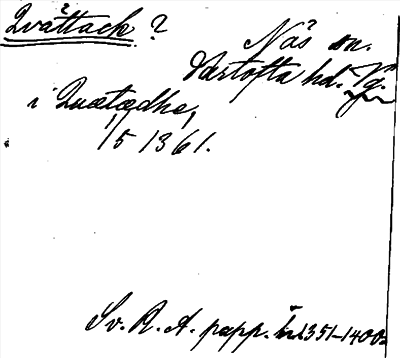 Qvättack ?
Näs sn.
Vartofta hd. Vg.
i Quætædhe,
1/5 1361.
Sv. R. A. papp. br 1351-1400.